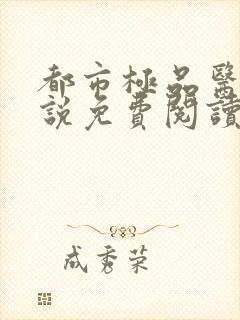 都市極品醫
說免費閱讀
成秀荣